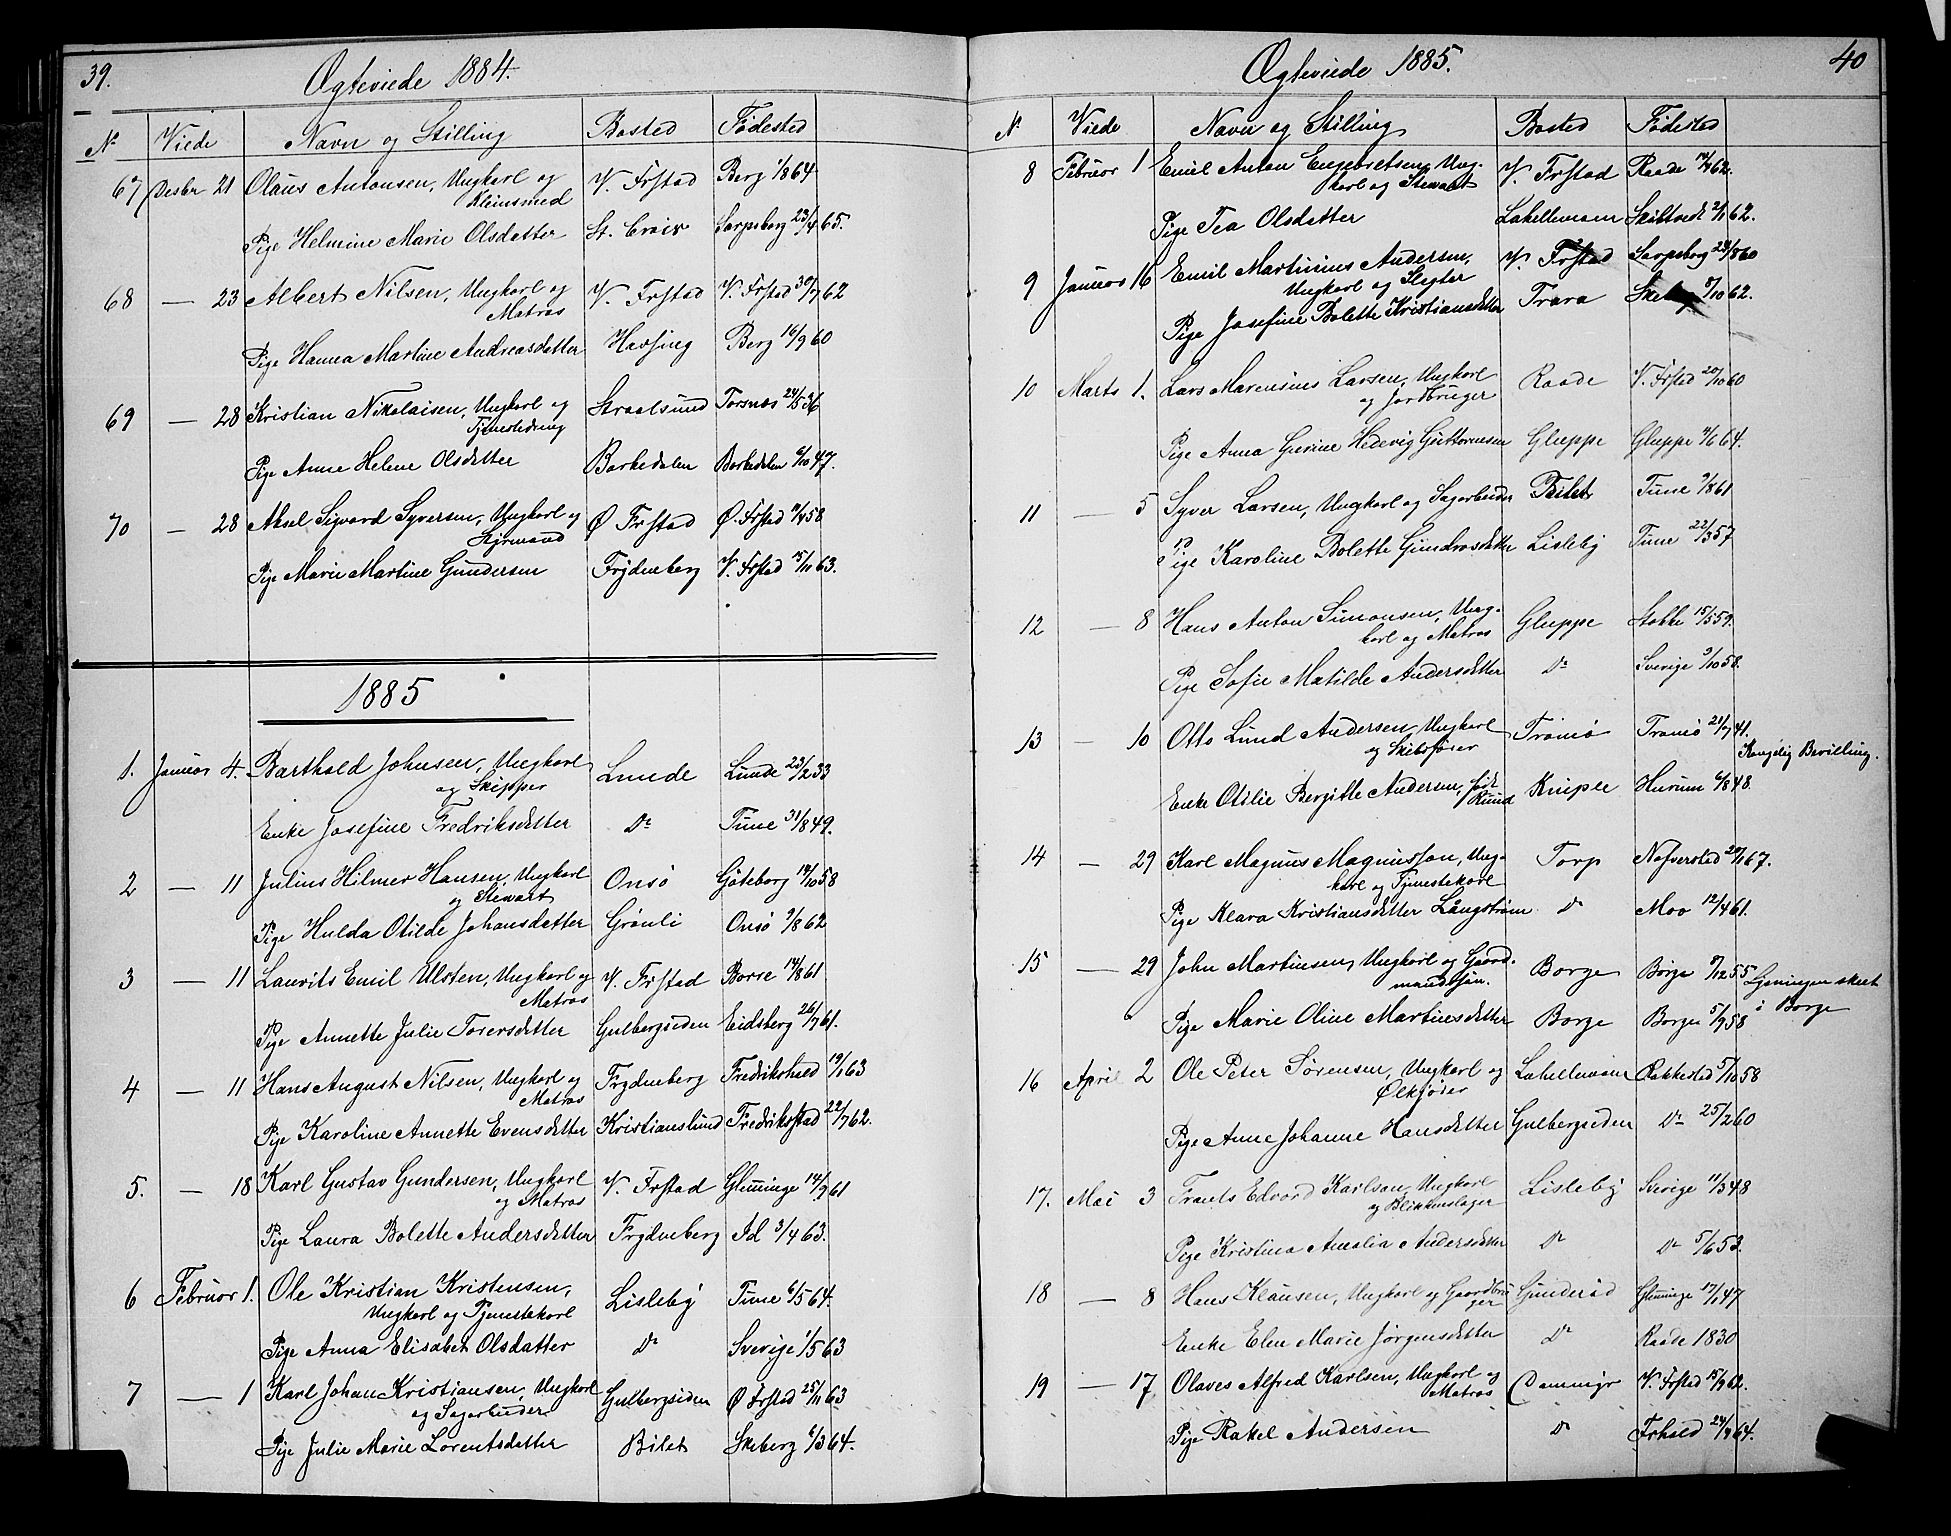 39.
Ægteviede 1884.
No Viede Navn og Stilling Bosted Fødested
67 Desbr 21 Olaus Antonsen, Ungkarl og V. Frstad Berg 1/8 64
Kleinsmed
Pige Helmine Marie Olsdatter St. Croix Sarpsborg 23/4 65.
68 — 23 Albert Nilsen, Ungkarl og V. Frstad V. Frstad 30/7 62
Matros
Pige Hanna Martine Andreasdatter Havsing Berg 16/9 60
69 — 28 Kristian Nikolaisen, Ungkarl og Straalsund Torsnæs 24/5 36
Tjenestedreng
Pige Anne Helene Olsdatter Borkedalen Borkedalen 6/10 47.
70 — 28 Aksel Sigvard Syversen, Ungkarl og Ø Frstad Ø. Frstad 58
Styrmand
Pige Marie Martine Gundersen Frydenberg V. Frstad 63.
1885
1. Januar 4. Barthold Johnsen, Ungkarl Lunde Lunde 23/2 33
og Skipper
Enke Josefine Fredriksdatter Do Tune 31/8 49.
2 — 11 Julius Hilmer Hansen, Ungkarl Onsø Göteborg 14/10 58
og Stewart
Pige Hulda Otilde Johansdatter Grønli Onsø 9/8 62
3 — 11 Laurits Emil Ulsten, Ungkarl og V. Frstad Borre 14/8 61
Matros
Pige Annette Julie Torersdatter Gulbergsiden Eidsberg 26/7 61.
4 — 11 Hans August Nilsen, Ungkarl og Frydenberg Fredrikshald 19/1 63
Matros
Pige Karoline Annette Evensdatter Kristianslund Fredriksstad 22/7 62.
5. — 18 Karl Gustav Gundersen, Ungkarl V. Frstad Glemminge 14/9 61
og Matros
Pige Laura Bolette Andersdatter Frydenberg Id 3/4 63.
6 Februar 1. Ole Kristian Kristensen, Lisleby Tune 6/5 64.
Ungkarl og Tjenestekarl
Pige Anna Elisabet Olsdatter Do Sverige 1/5 63
7 — 1 Karl Johan Kristiansen, Ungkarl Gulbergsiden Ø Frstad 25/11 63
og Sagarbeider
Pige Julie Marie Lorentsdatter Bilet Skeberg 6/3 64.
40
Ægteviede 1885.
No Viede Navn og Stilling Bosted Fødested
8 Februar 1 Emil Anton Engebretsen, Ung- V. Frstad Raade 62.
karl og Stewart
Pige Tea Olsdatter Lahellemoen Skibtvedt 62.
9 Januar 16 Emil Martinius Andersen, V. Frstad Sarpsborg 24/8 60
Ungkarl og Slagter
Pige Josefine Bolette Kristiansdatter Trara 62.
10 Marts 1. Lars Marensius Larsen, Ungkarl Raade V. Frstad 20/10 60
og Jordbruger
Pige Anna Hedevig Guttormsen Gluppe Gluppe 64.
11 — 5 Syver Larsen, Ungkarl og Sagarbeider Bilet Tune 61
Pige Karoline Bolette Lisleby Tune 22/3 57
12 — 8 Hans Anton Simonsen, Ung- Gluppe Stokke 15/5 59.
karl og Matros
Pige Sofie Matilde Andersdatter Do Sverige 9/10 58.
13 — 10 Otto Lund Andersen, Ungkarl Tromø Tromø 21/7 41.
og Skibsfører
Kongelig Bevilling.
Enke Otilie Bergitte Andersen, født Kniple Hurum 6/8 48.
14 — 29 Karl Magnus Magnusson, Ung- Torp Nafverstad 67.
karl og Tjenestekarl
Pige Klara Kristiansdatter Långstrøm Do Moo 12/4 61.
15 — 29 John Martinsen, Ungkarl og Gaard- Borge Borge 55
mandssøn.
Lysningen skeet
i Borge
Pige Marie Oline Martinsdatter Borge Borge 5/9 58
16 April 2 Ole Peter Sørensen, Ungkarl og Lahellemoen Rakkestad 5/10 58
Ølkjører
Pige Anne Johanne Hansdatter Gulbergsiden Do 25/2 60
17. Mai 3 Frants Edvard Karlson, Ungkarl Lisleby Sverige 11/3 48
og Blikkenslager
Pige Kristina Amalia Andersdatter Do Do 5/6 53.
18 — 8 Hans Klausen, Ungkarl og Gaardbru Gunderød Glemminge 17/1 47
ger
Enke Elen Marie Jørgensdatter Do Raade 1830
19 — 17 Olaves Alfred Karlsen, Ungkarl og V. Frstad 15/9 62.
Matros
Pige Rakel Andersen Do Frhald 64.